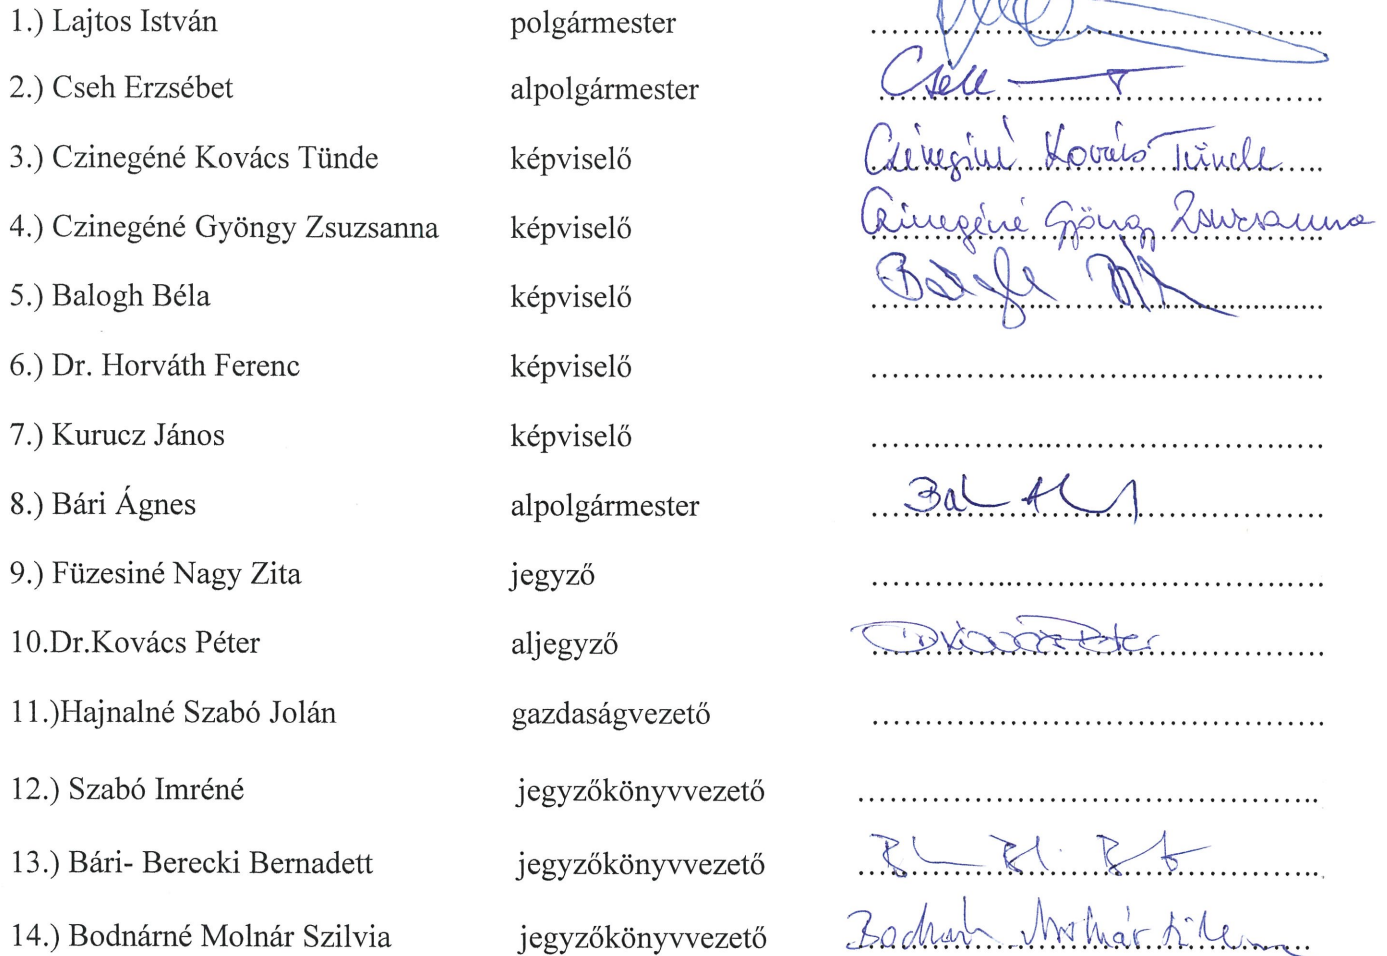 1.) Lajtos István polgármester ........................................................
2.) Cseh Erzsébet alpolgármester Cseh
3.) Czinegéné Kovács Tünde képviselő Czinegéné Kovács Tünde
4.) Czinegéné Gyöngy Zsuzsanna képviselő Czinegéné Gyöngy Zsuzsanna
5.) Balogh Béla képviselő Balogh
6.) Dr. Horváth Ferenc képviselő ........................................................
7.) Kurucz János képviselő ........................................................
8.) Bári Ágnes alpolgármester ........................................................
9.) Füzesiné Nagy Zita jegyző ........................................................
10.Dr.Kovács Péter aljegyző Dr Kovács Péter
11.)Hajnalné Szabó Jolán gazdaságvezető ........................................................
12.) Szabó Imréné jegyzőkönyvvezető ........................................................
13.) Bári- Berecki Bernadett jegyzőkönyvvezető ........................................................
14.) Bodnárné Molnár Szilvia jegyzőkönyvvezető Molnár